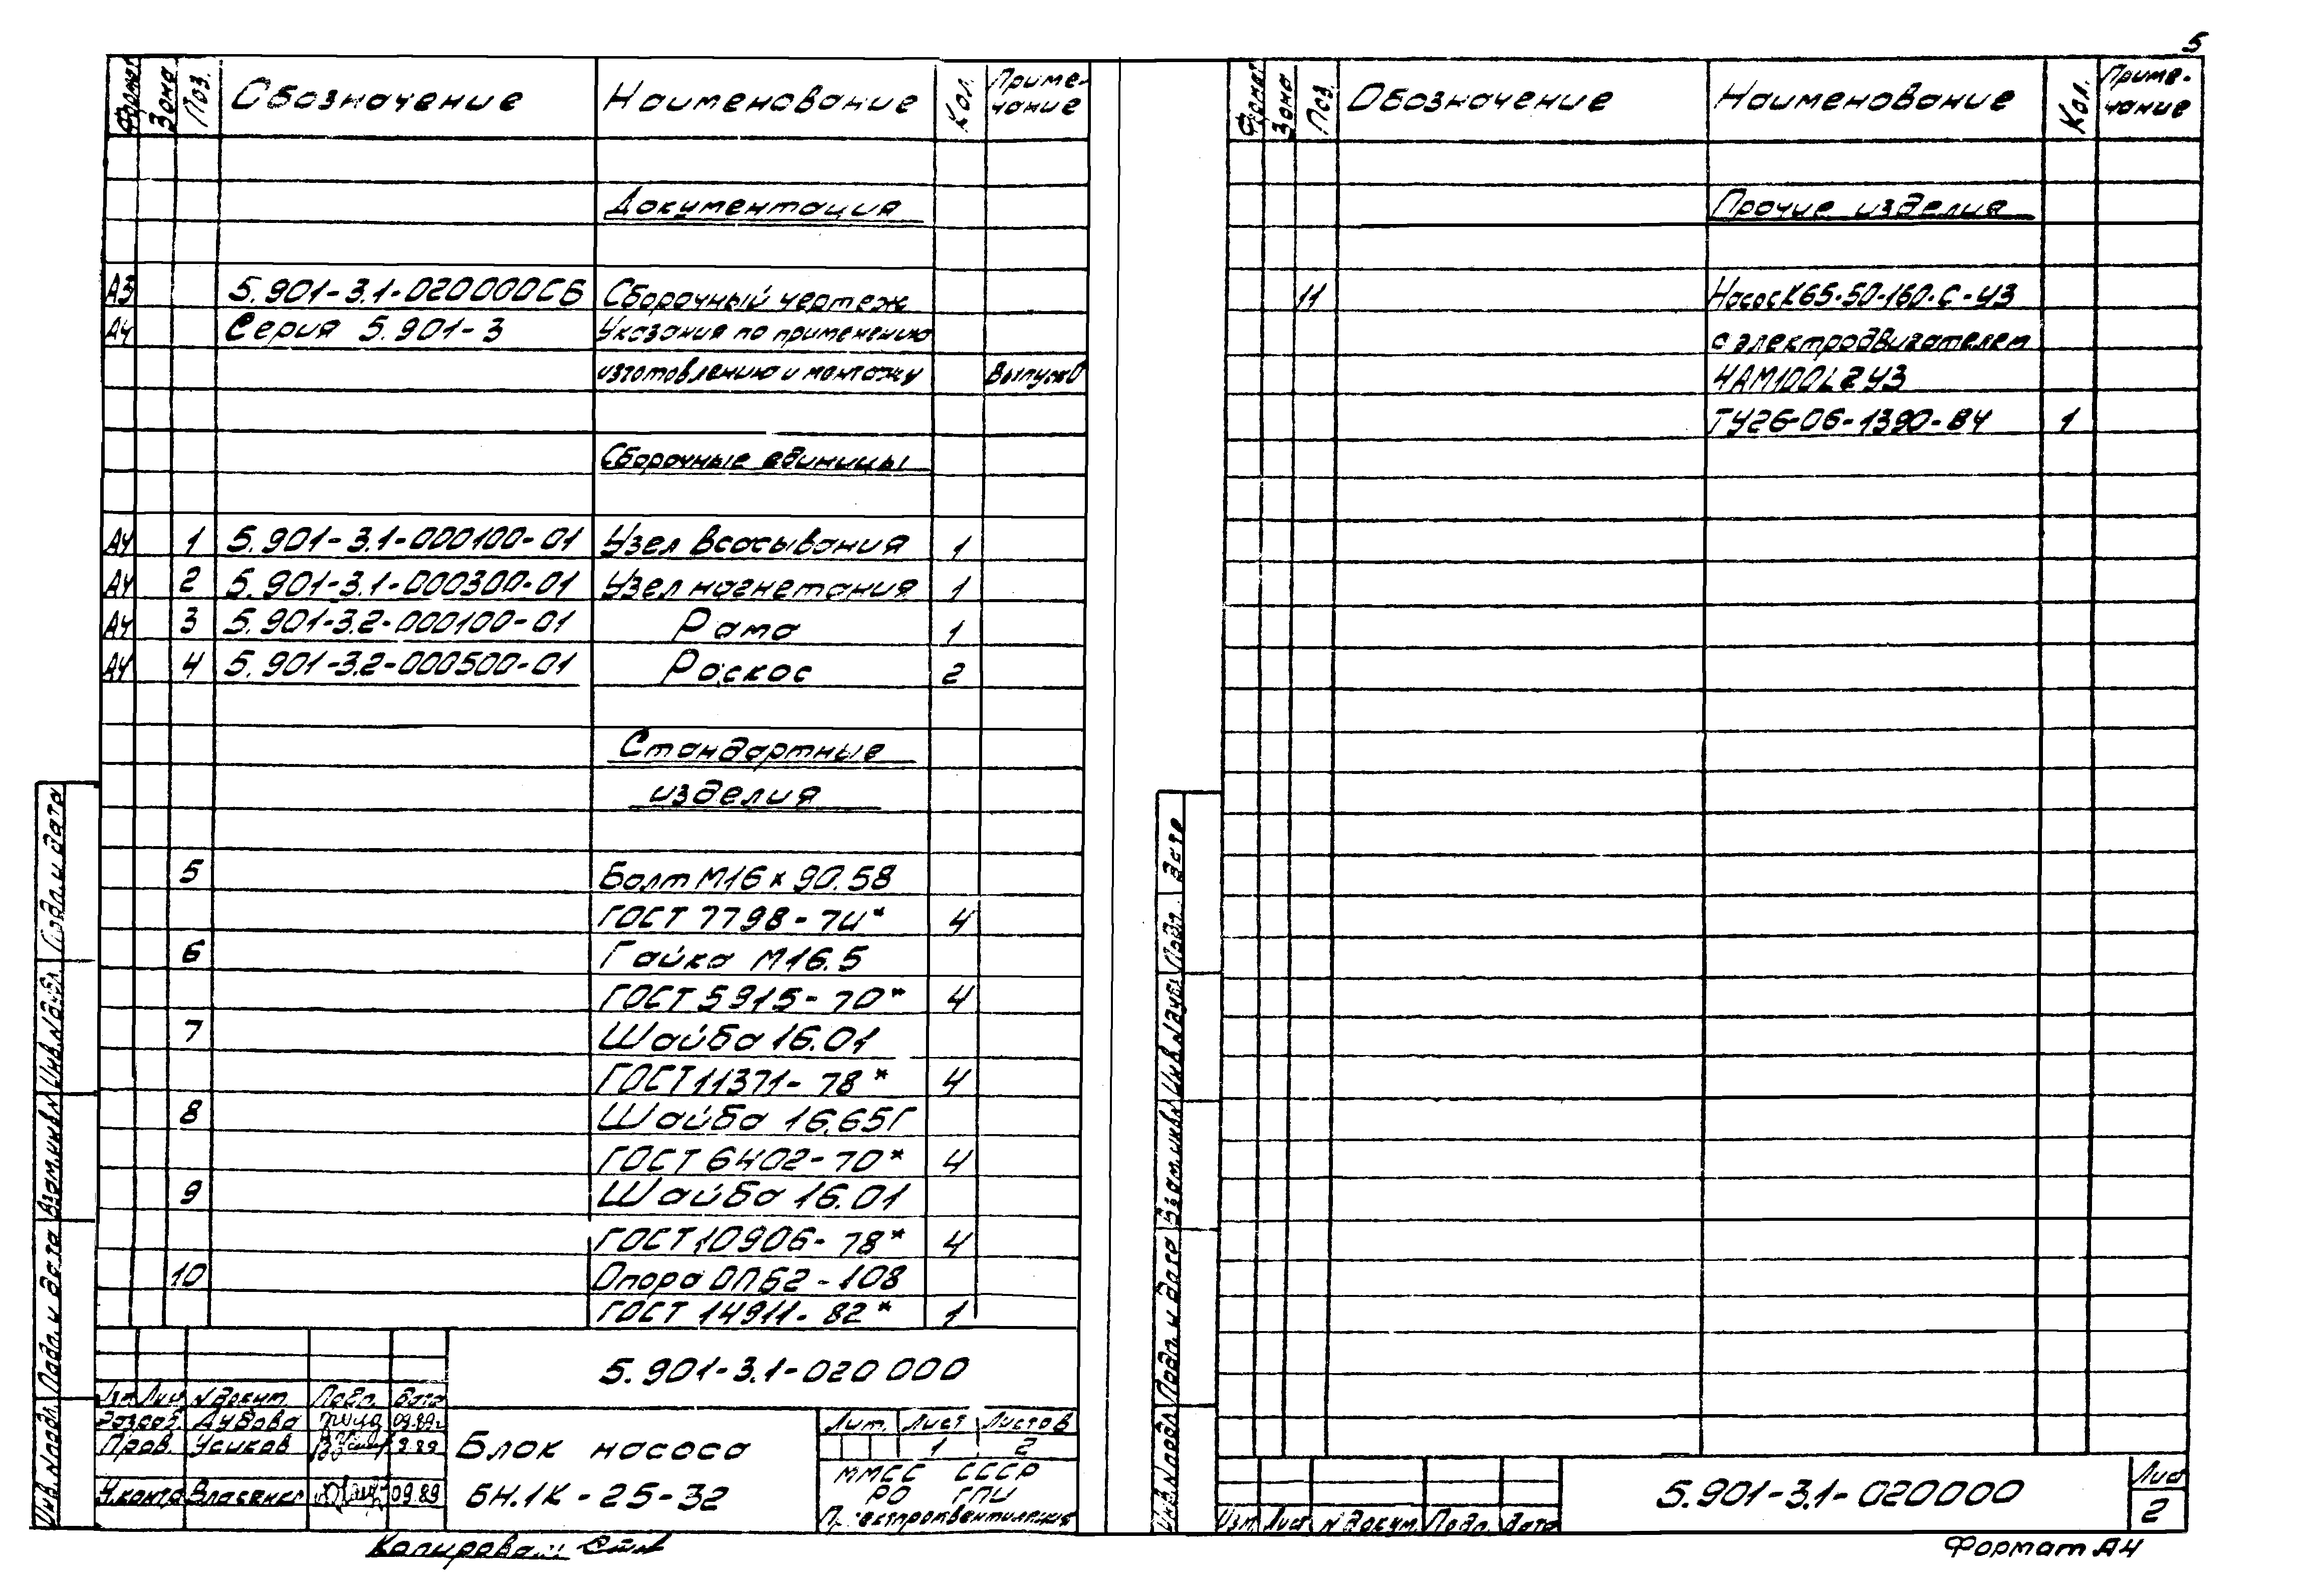 5
Формат Зона Поз. Обозначение Наименование Кол. Приме-
чание
Документация
А3 5.901-3.1-020000СБ Сборочный чертеж
А4 Серия 5.901-3 Указания по применению
изготовлению и монтажу Выпуск 0
Сборочные единицы
А4 1 5.901-3.1-000100-01 Узел всасывания 1
А4 2 5.901-3.1-000300-01 Узел нагнетания 1
А4 3 5.901-3.2-000100-01 Рама 1
А4 4 5.901-3.2-000500-01 Раскос 2
Стандартные
изделия
5 Болт М16 х 90.58
ГОСТ 7798-74* 4
6 Гайка М16.5
ГОСТ 5915-70* 4
7 Шайба 16.01
ГОСТ 11371-78* 4
8 Шайба 16.65Г
ГОСТ 6402-70* 4
9 Шайба 16.01
ГОСТ 10906-78* 4
10 Опора ОПБ2-108
ГОСТ 14911-82* 1
5.901-3.1-020 000
Изм Лист N докум. Подп. Дата
Разраб. Дудова 09.89г
Пров. Усиков 9.89
Н.контр Власенко 09.89
Блок насоса
БН.1К-25-32
Лит. Лист Листов
1 2
ММСС СССР
РО ГПИ
Проектпромвентиляция
Инв. N подл. Подп. и дата Взам. инв. N Инв. N дубл. Подп. и дата
Копировал
Формат Зона Поз. Обозначение Наименование Кол. Приме-
чание
Прочие изделия
11 Насос К65-50-160-С-У3
с электродвигателем
4АМ100L2У3
ТУ26-06-1390-84 1
5.901-3.1-020000
Лист
2
Изм. Лист N докум. Подп. Дата
Инв. N подл. Подп. и дата Взам. инв. N Инв. N дубл. Подп. дата
Формат А4